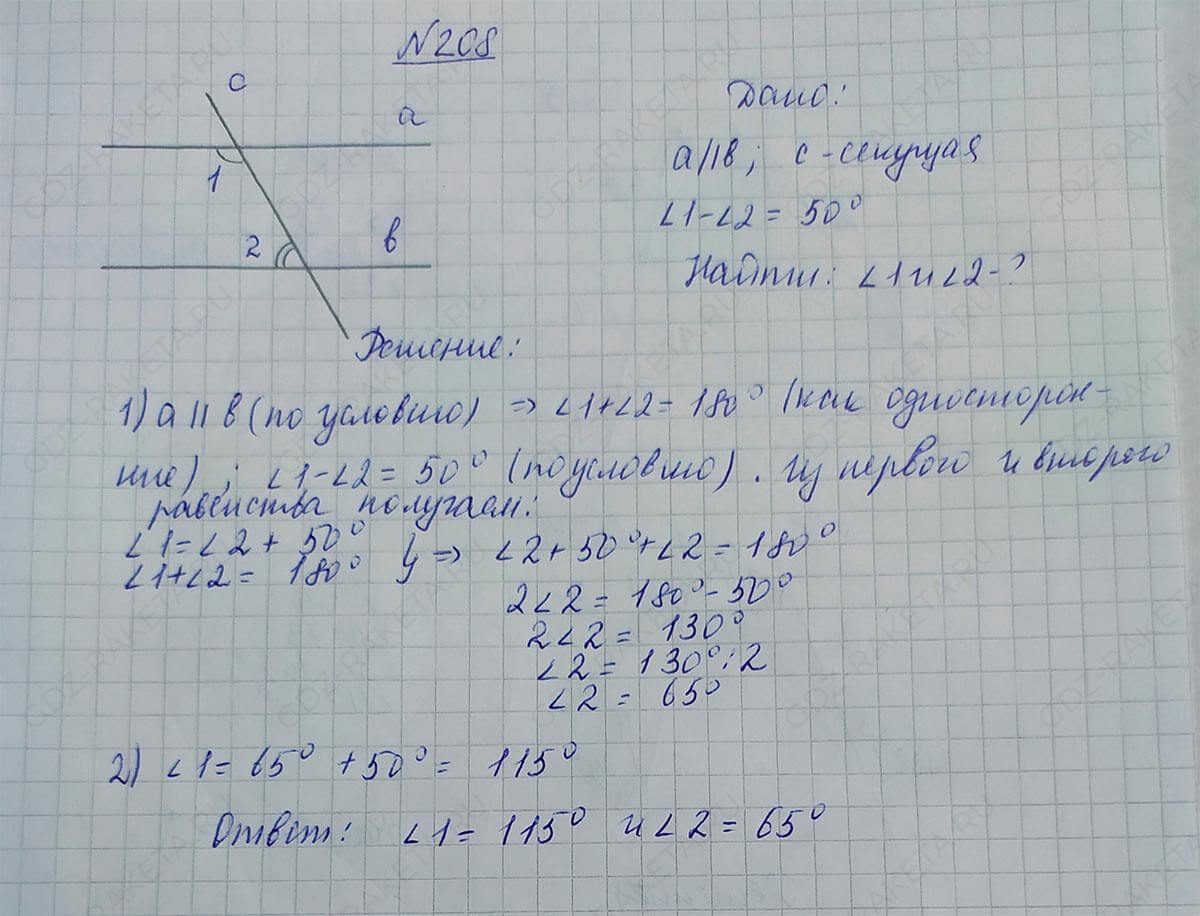 №208
c
a
1
2
в
Дано:
a||в; c - секущая
∠1-∠2= 50°
Найти: ∠1 и ∠2-?
Решение:
1) a || в (по условию) => ∠1+∠2= 180° (как односторон-
ние) ; ∠1-∠2= 50° (по условию) . Из первого и второго
равенства получаем:
∠1=∠2+ 50°
∠1+∠2= 180° } => ∠2+50°+∠2=180°
2∠2= 180°-50°
2∠2= 130°
∠2= 130°:2
∠2= 65°
2) ∠1= 65° +50°= 115°
Ответ: ∠1= 115° и ∠2= 65°
GDZ-RAKETA.RU